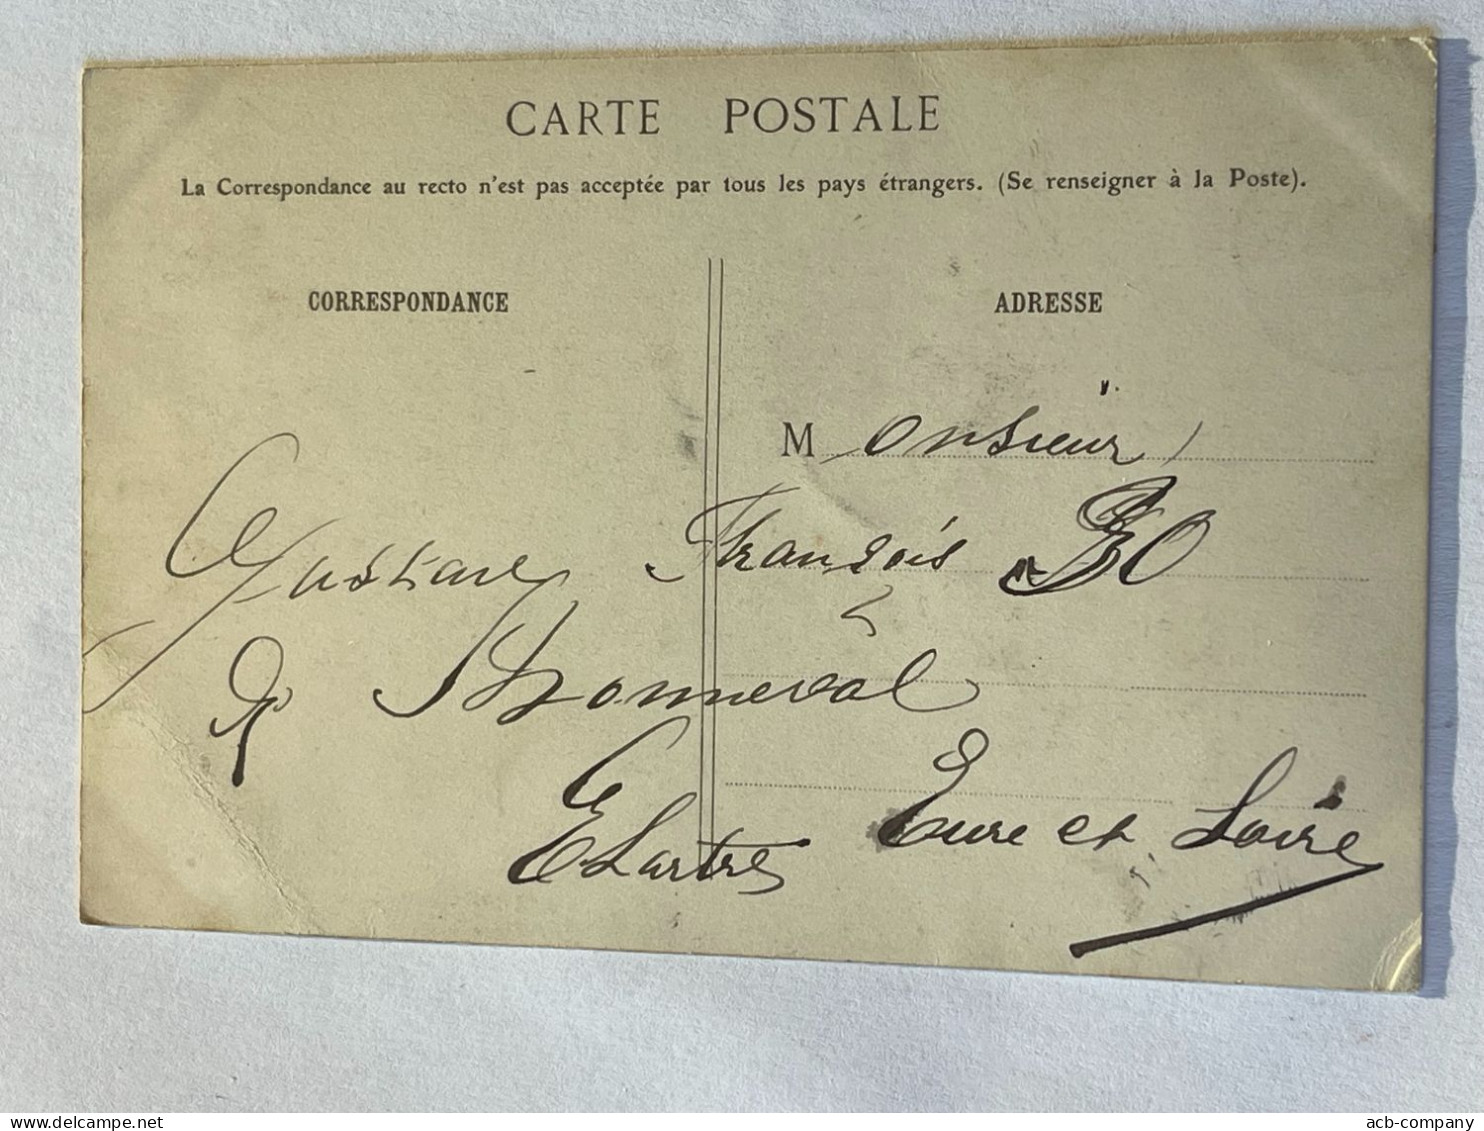 CARTE POSTALE
La Correspondance au recto n'est pas acceptée par tous les pays étrangers. (Se renseigner à la Poste).
CORRESPONDANCE
ADRESSE
Monsieur
Gustave François
à Bonneval
Eure et Loire
acb-company